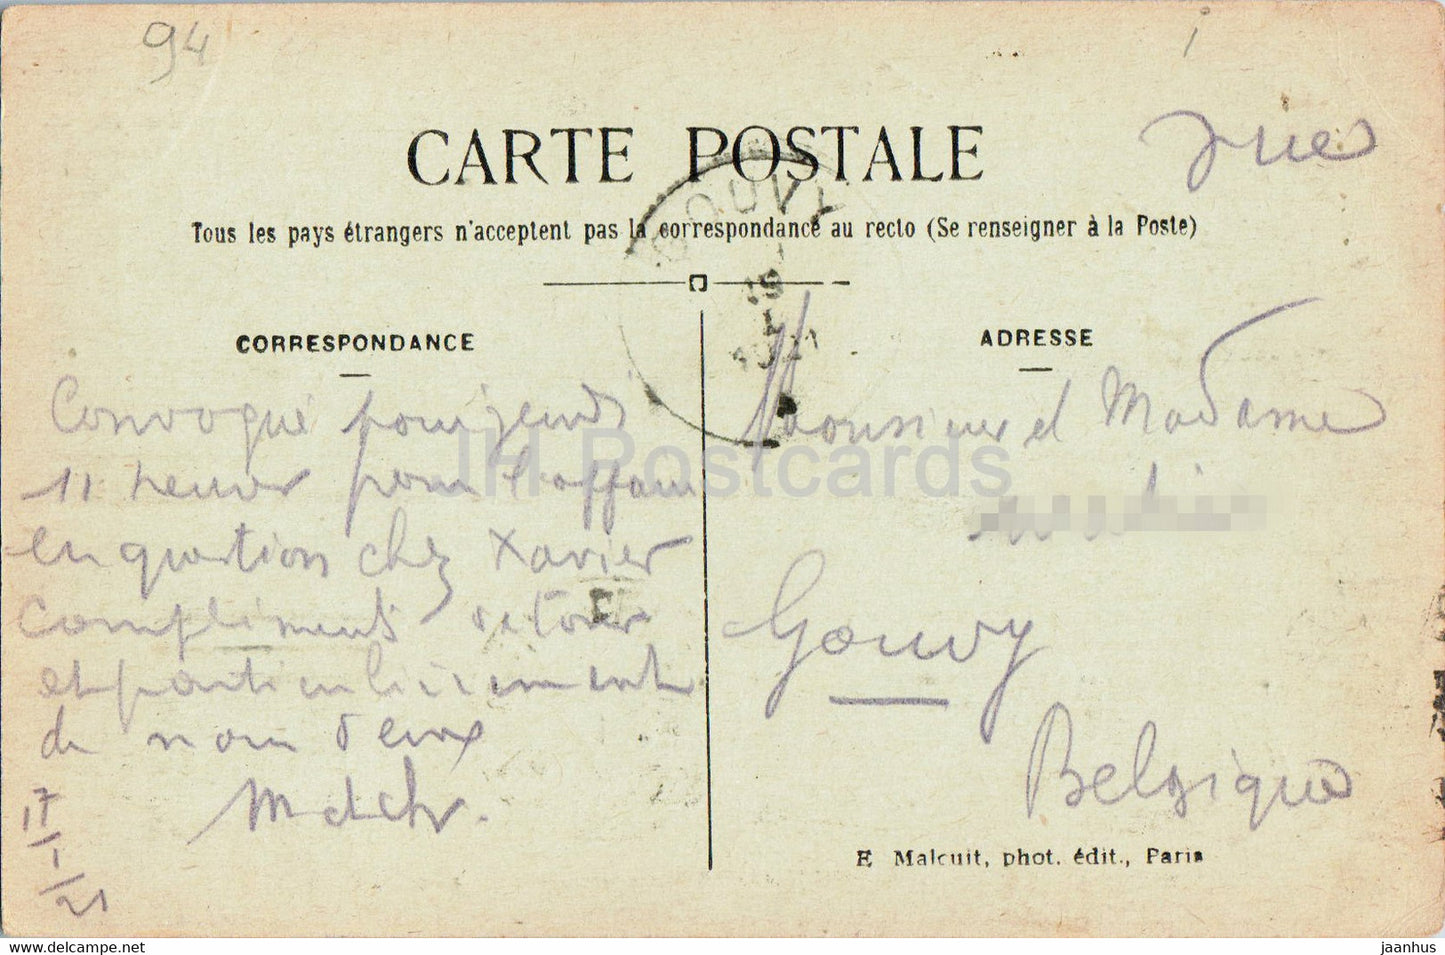 94
CARTE POSTALE
Tous les pays étrangers n'acceptent pas la correspondance au recto (Se renseigner à la Poste)
GOUVY
CORRESPONDANCE
ADRESSE
Convoqué pour jeudi
11 heures pour l'affaire
en question chez Xavier
Compliments retour
et particulièrement
de nous deux
17/1/21
Monsieur et Madame
Gouvy
Belgique
E Malcuit, phot. édit., Paris
JH Postcards
www.delcampe.net
jaanhus